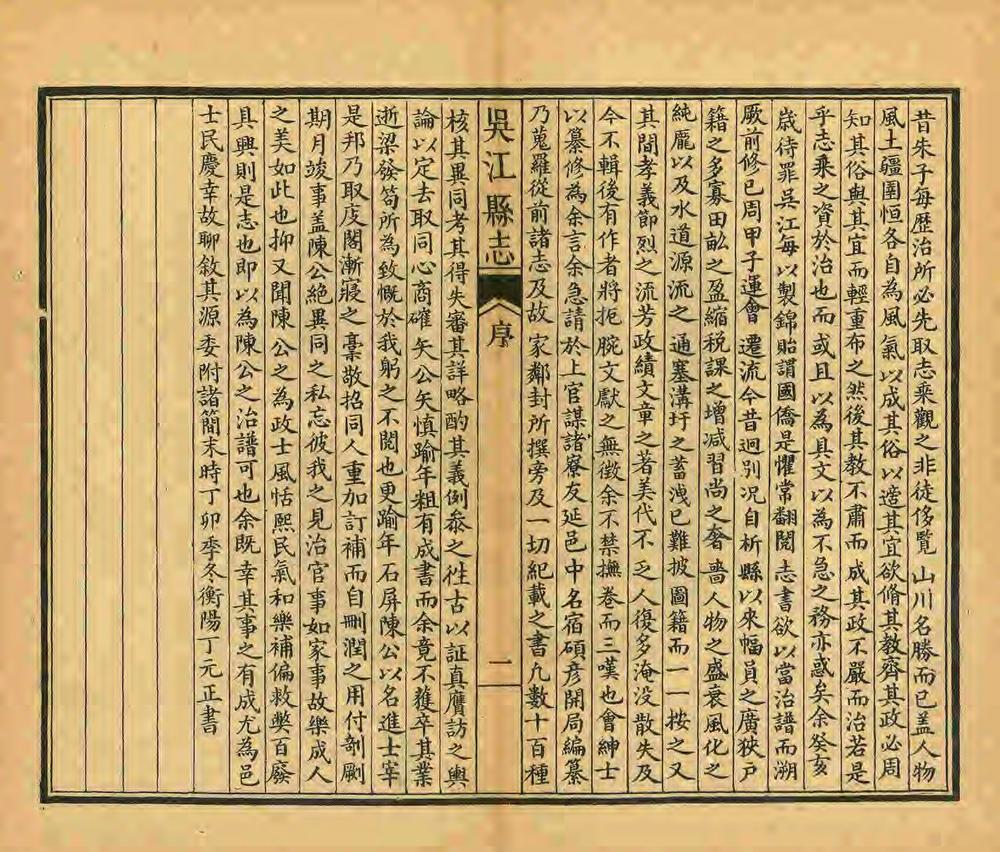 昔朱子每歷治所必先取志乘觀之非徒侈覽山川名勝而已盖人物
風土疆圉恒各自為風氣以成其俗以適其宜欲脩其教齊其政必周
知其俗與其宜而輕重布之然後其教不肅而成其政不嚴而治若是
乎志乘之資於治也而或且以為具文以為不急之務亦惑矣余癸亥
歲待罪吳江每以製錦貽謂國僑是懼常翻閱志書欲以當治譜而溯
厥前修已周甲子運會遷流今昔迥別况自析縣以來幅員之廣狹戶
籍之多寡田畝之盈縮稅課之增減習尚之奢嗇人物之盛衰風化之
純龐以及水道源流之通塞溝圩之蓄洩已難披圖籍而一一按之又
其間孝義節烈之流芳政績文章之著美代不乏人復多淹没散失及
今不輯後有作者將扼腕文獻之無徵余不禁撫卷而三嘆也會紳士
以纂修為余言余急請於上官謀諸寮友延邑中名宿碩彦開局編纂
乃蒐羅從前諸志及故家鄰封所撰旁及一切紀載之書凢數十百種
吳江縣志
序
二
核其異同考其得失審其詳略酌其義例叅之徃古以証真贋訪之輿
論以定去取同心商確矢公矢慎踰年粗有成書而余竟不獲卒其業
逝梁發笱所為致慨於我躬之不閱也更踰年石屏陳公以名進士宰
是邦乃取庋閣漸寢之稾敬招同人重加訂補而自刪潤之用付剞劂
期月竣事盖陳公絶異同之私忘彼我之見治官事如家事故樂成人
之美如此也抑又聞陳公之為政士風恬熙民氣和樂補偏救獘百廢
具興則是志也即以為陳公之治譜可也余既幸其事之有成尤為邑
士民慶幸故聊敘其源委附諸簡末時丁卯季冬衡陽丁元正書